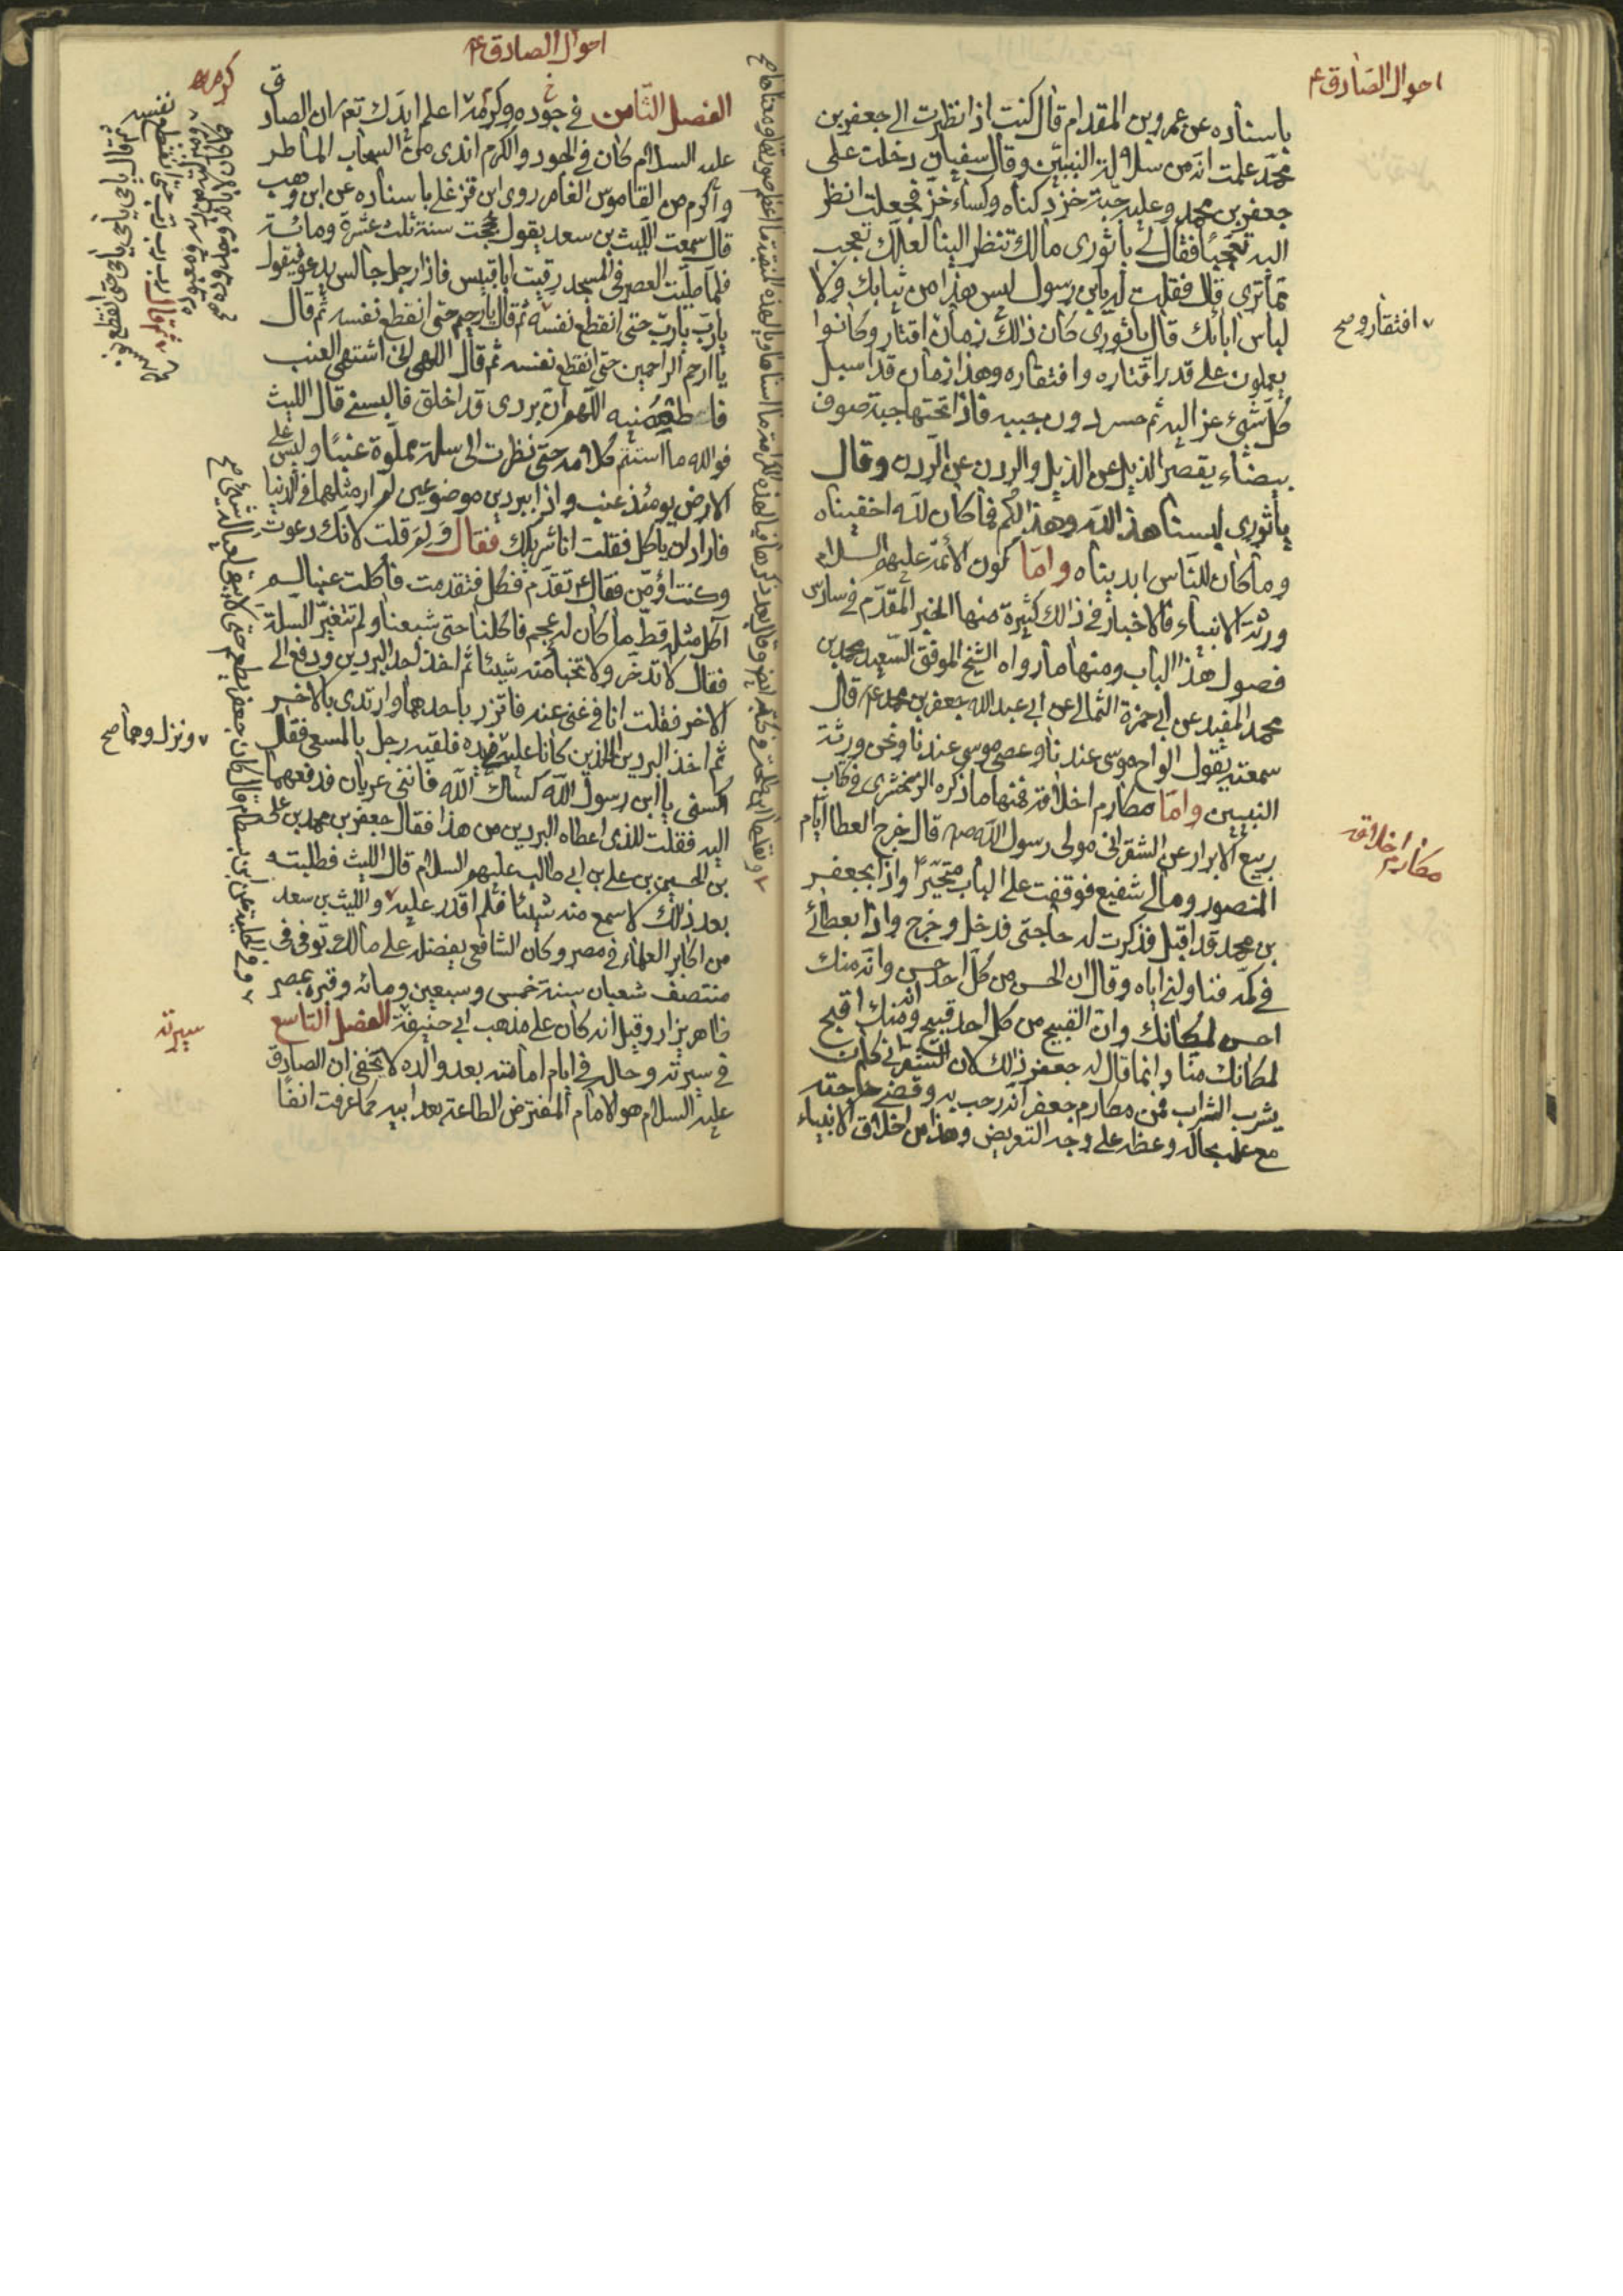 احوال الصادق ع
باسناده عن عمرو بن المقدام قال كنت اذا نظرت الى جعفر بن
محمد علمت انه من سلالة النبيين وقال سفيان دخلت على
جعفر بن محمد وعليه جبة خز دكناه وكساء خز فجعلت انظر
اليه تعجبا فقال لي يا ثورى مالك تنظر الينا لعلك تعجب
مما ترى قال فقلت له يابن رسول ليس هذا من ثيابك ولا
لباس ابائك قال يا ثورى كان ذلك زمان اقتار وكانوا
افتقار وصح
يعملون على قدر اقتاره وافتقاره وهذا زمان قد اسبل
كل شئ عز اليه ثم حسر دون جيبه فاذا تحتها جبة صوف
بيضاء يقصر الذيل عن الذيل والردن عن الردن وقال
يا ثورى لبسنا هذا لله وهذا لكم فما كان لله اخفيناه
وما كان للناس ابديناه واما كون الائمة عليهم السلام
ورثة الانبياء فالاخبار في ذلك كثيرة منها الخبر المقدم في سادس
فصول هذا الباب ومنها ما رواه الشيخ الموفق السعيد محمد بن
محمد المفيد عن ابى حمزة الثمالى عن ابي عبد الله جعفر بن محمد ع قال
سمعته يقول الواح موسى عندنا وعصى موسى عندنا ونحن ورثة
النبيين واما مكارم اخلاقه فمنها ما ذكره الزمخشرى في كتاب
مكارم اخلاقه
ربيع الابرار عن الشقرانى مولى رسول الله صه قال خرج العطا ايام
المنصور ومالى شفيع فوقفت على الباب متحيرا واذا بجعفر
بن محمد قد اقبل فذكرت له حاجتى فدخل وخرج واذا بعطائى
في كمه فناولني اياه وقال ان الحسن من كل احد حسن وانه منك
احسن لمكانك وان القبيح من كل احد قبيح وانه منك اقبح
لمكانك منا وانما قال له جعفر ذلك لان الشقرانى كان
يشرب الشراب فمن مكارم جعفر انه رحب به وقضى حاجته
مع علمه بحاله وعظه على وجه التعريض وهذا من اخلاق الانبياء
احوال الصادق ع
كرمه
الفصل الثامن في جوده وكرمه اعلم ايدك تع ان الصادق
عليه السلام كان في الجود والكرم اندى من السحاب الماطر
واكرم من القاموس الغامر روى ابن قزغلى باسناده عن ابن وهب
قال سمعت الليث بن سعد يقول حججت سنة ثلث عشرة ومائة
فلما صليت العصر فى المسجد رقيت ابا قبيس فاذا رجل جالس يدعو فيقول
يا رب يا رب حتى انقطع نفسه ثم قال يا رحيم حتى انقطع نفسه ثم قال
يا ارحم الراحمين حتى انقطع نفسه ثم قال اللهم انى اشتهى العنب
فاطعمنيه اللهم ان بردى قد اخلق فالبسني قال الليث
فوالله ما استتم كلامه حتى نظرت الى سلة مملوة عنبا وليس على
الارض يومئذ عنب واذا ببردين موضوعين لم ار مثلهما في الدنيا
فاراد ان ياكل فقلت انا شريكك فقال ولم قلت لانك دعوت
وكنت اؤمن فقال تقدم فكل فتقدمت فاكلت عنبا لم
آكل مثله قط ما كان له عجم فاكلنا حتى شبعنا ولم تتغير السلة
فقال لا تدخر ولا تخبأ منه شيئا ثم اخذ احد البردين ودفع الى
الاخر فقلت انا في غنى عنه فاتزر باحدهما وارتدى بالاخر
ثم اخذ البردين الذين كانا عليه بيده فلقيه رجل بالمسعى فقال
ونزل وهما صح
اكسنى يا ابن رسول الله كساك الله فاننى عريان فدفعهما
اليه فقلت للذى اعطاه البردين من هذا فقال جعفر بن محمد بن على
بن الحسين بن على بن ابي طالب عليهم السلام قال الليث فطلبته
بعد ذلك لاسمع منه شيئا فلم اقدر عليه والليث بن سعد
من اكابر العلماء في مصر وكان الشافعي يفضله على مالك توفى في
منتصف شعبان سنة خمس وسبعين ومائه وقبره بمصر
ظاهر يزار وقيل انه كان على مذهب ابي حنيفة الفصل التاسع
سيرته
في سيرته وحاله في ايام امامته بعد والده لا يخفى ان الصادق
عليه السلام هو الامام المفترض الطاعة بعد ابيه كما عرفت انفا
ثم قال يا حي يا حي حتى انقطع نفسه
وفي الحلية عن ابن بسطام قال كان جعفر يطعم حتى لا يبقى لعياله شئ صح